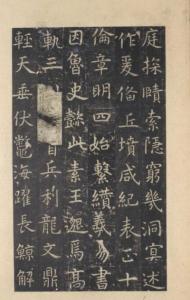 庭探賾索隱窮幾洞冥述
作爰俻丘墳咸紀表正十
倫章明四始繫纘羲易書
因魯史懿此素王邈焉高
軌三首兵利龍文鼎
輕天垂伏鱉海躍長鯨解